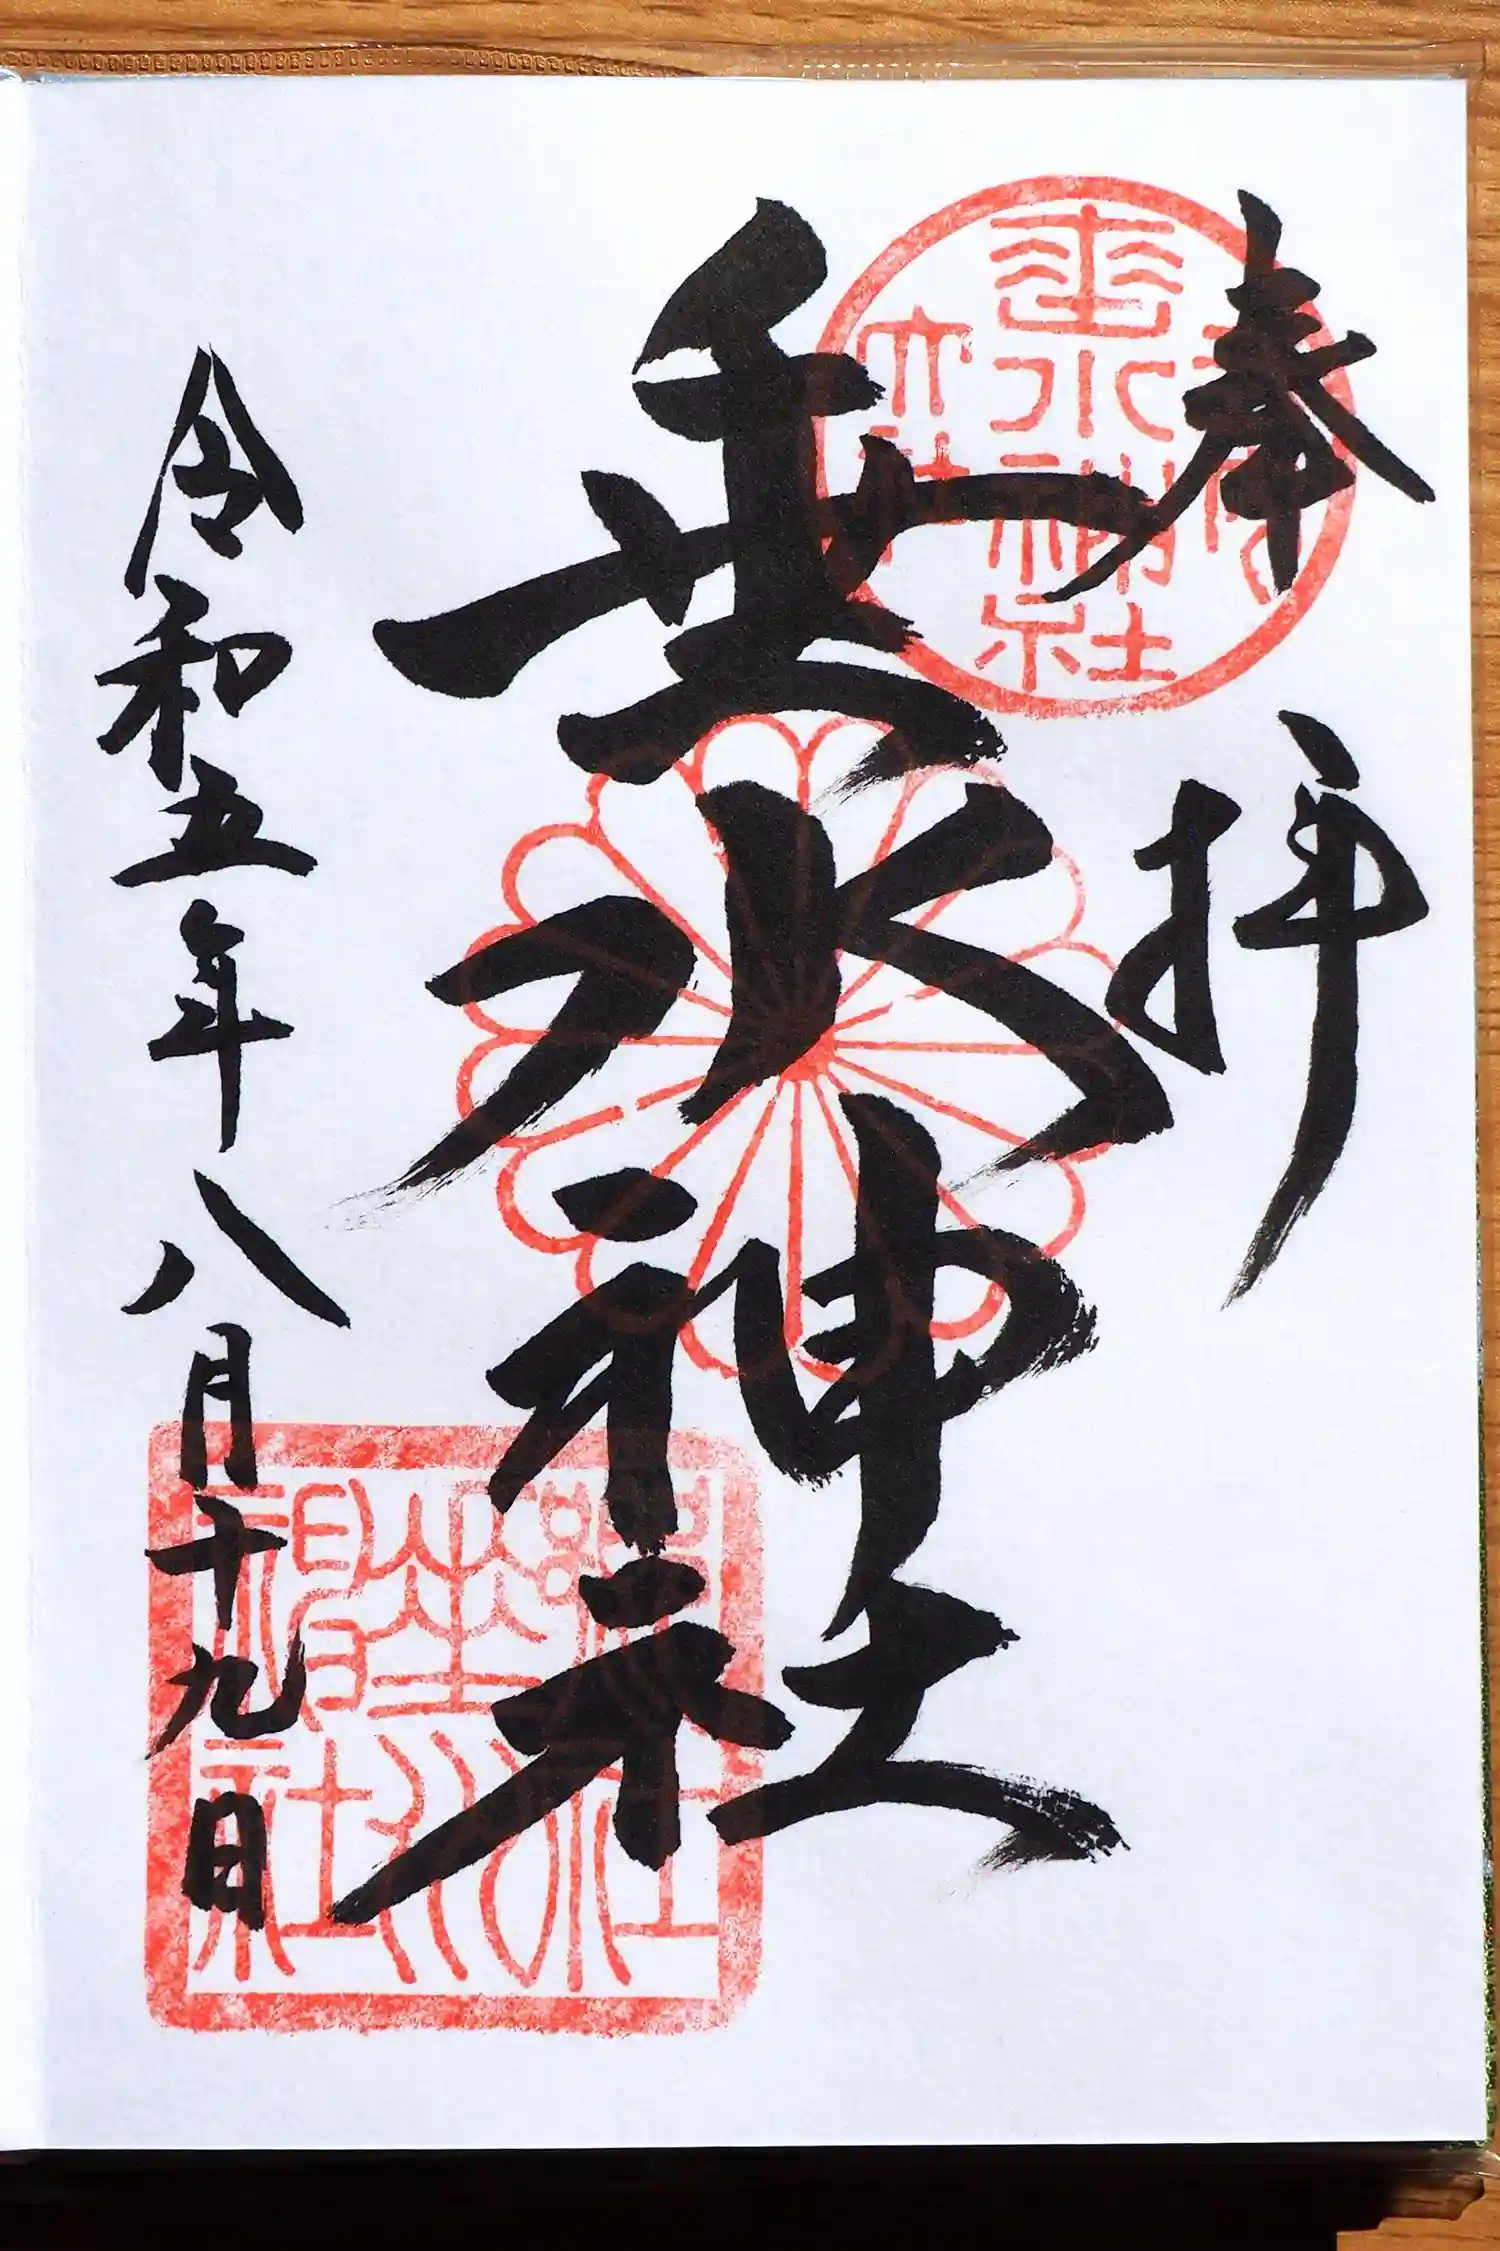 奉拝
垂水神社
令和五年八月十九日